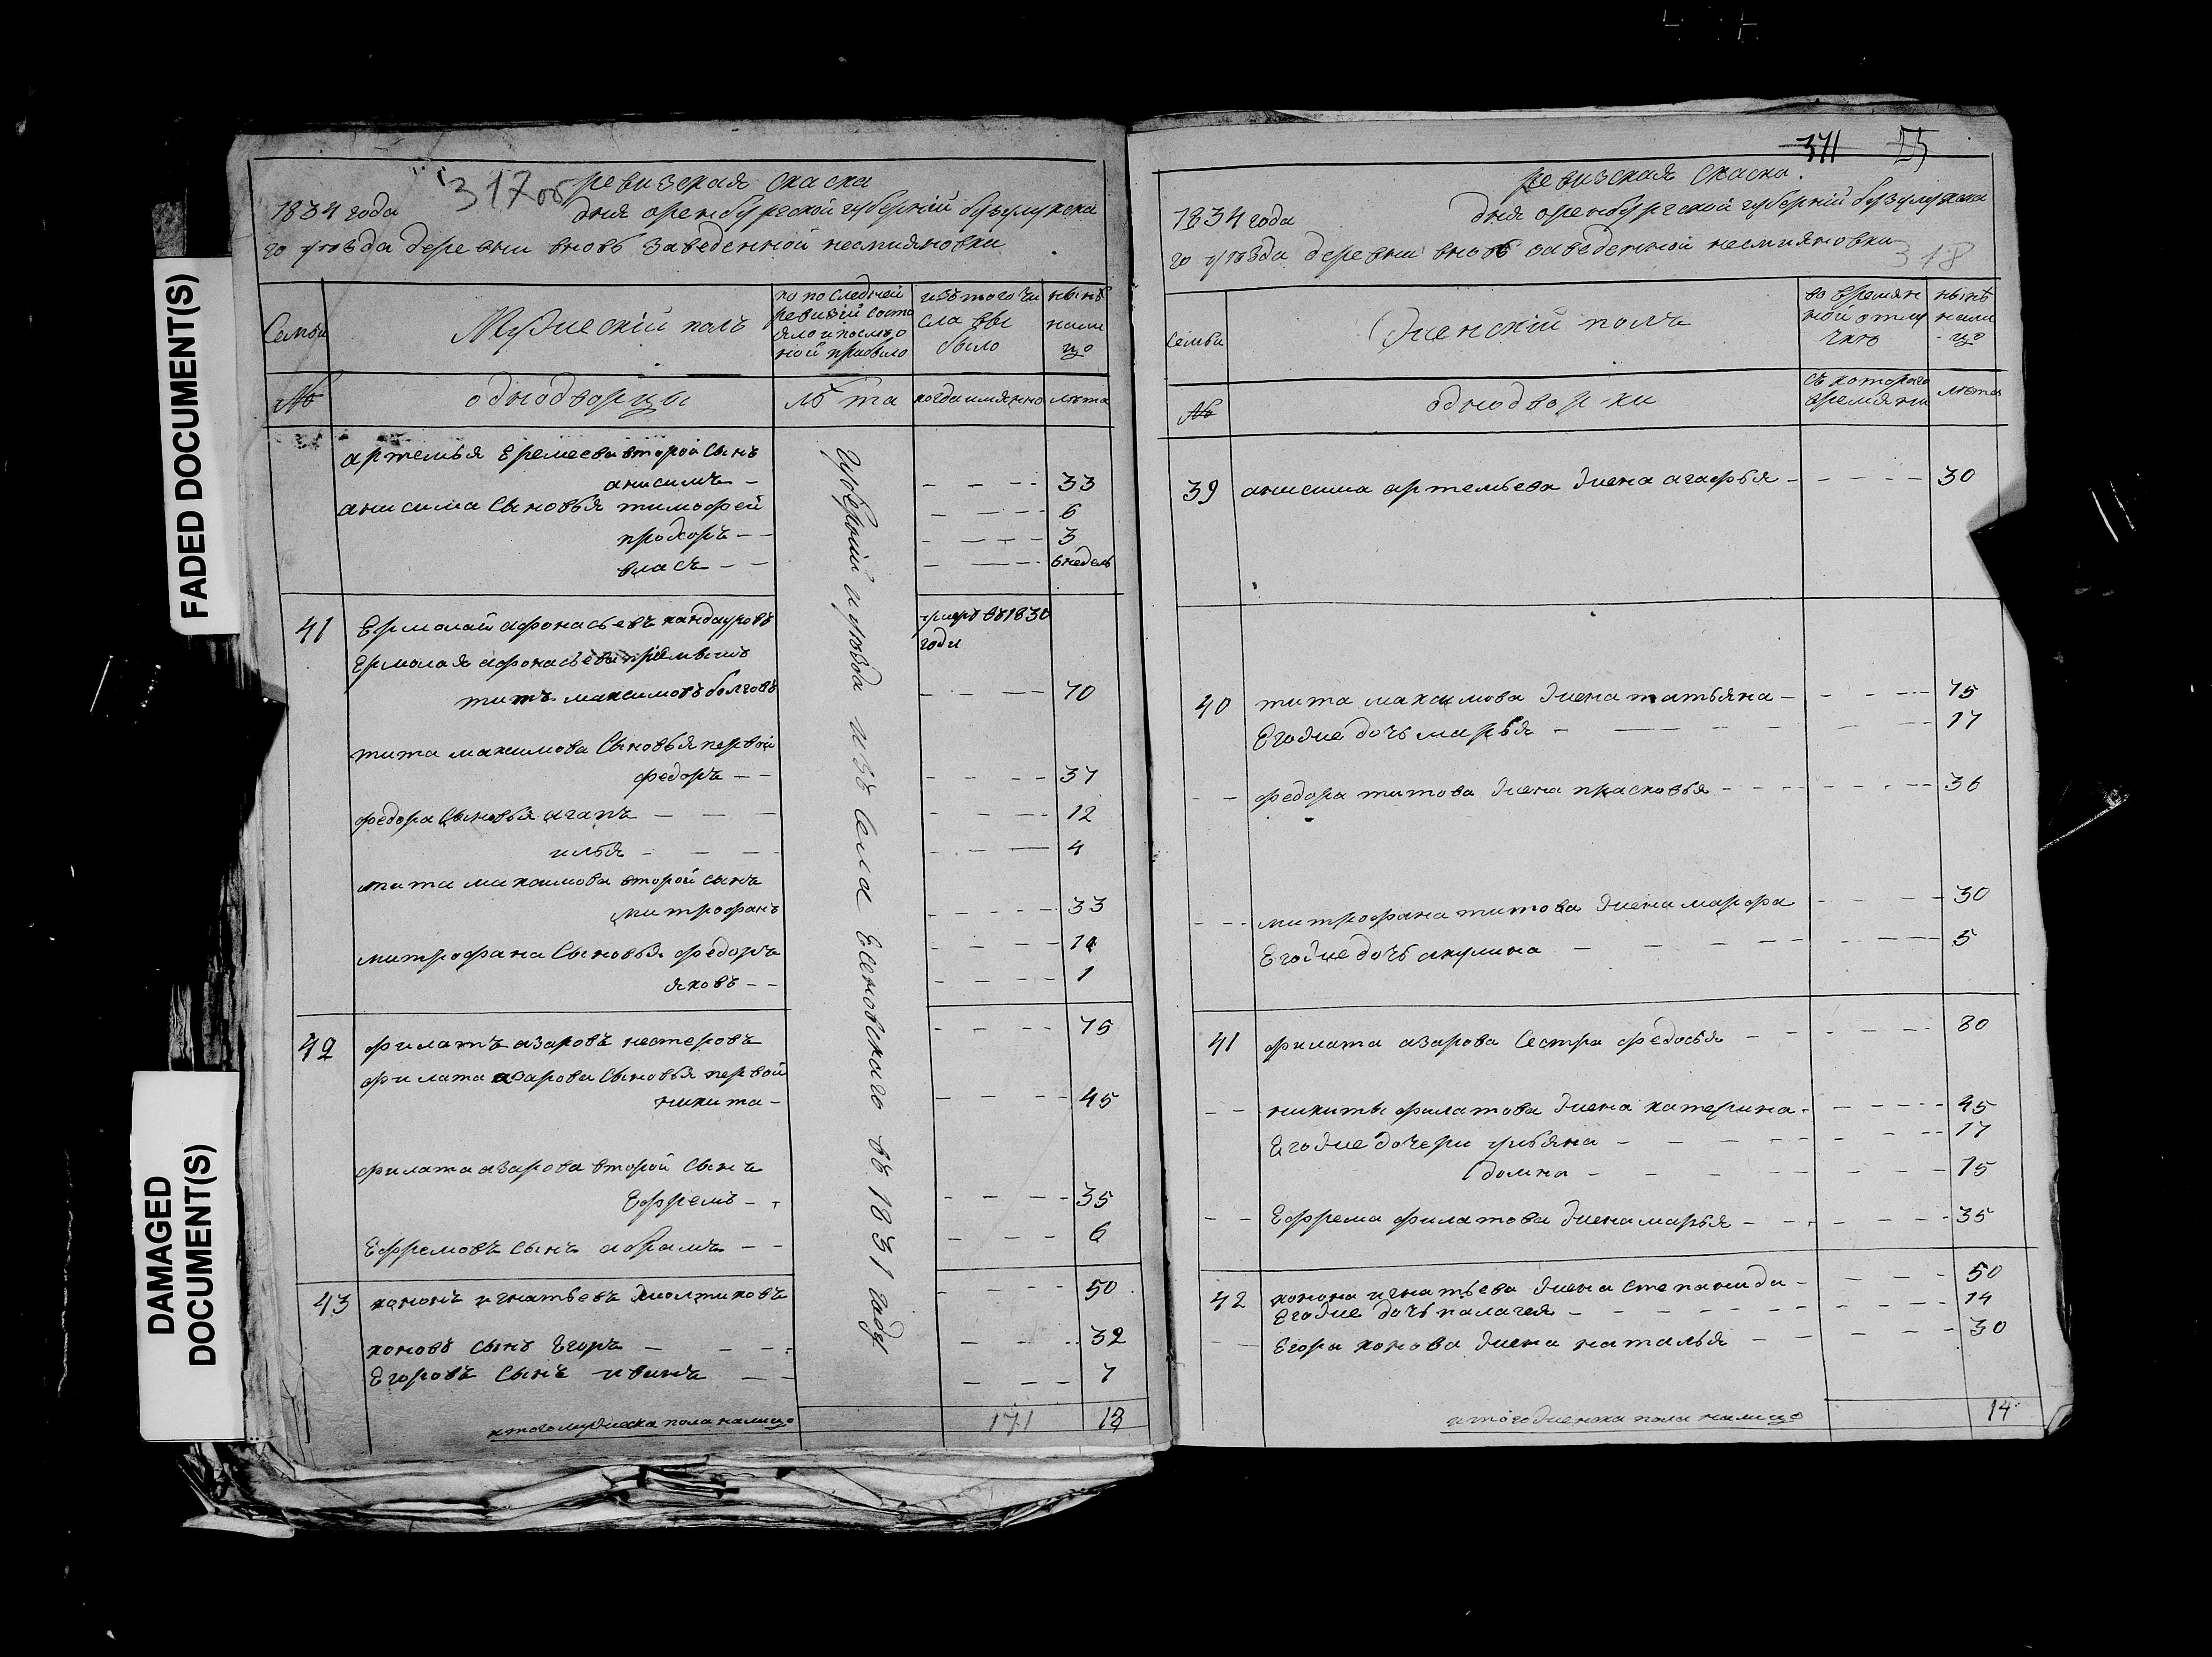 FADED DOCUMENT(S)
DAMAGED
DOCUMENT(S)
317об
ревизская скаска
1834 года дня оренбургской губерний бузулукска
го уѣзда деревни вновь заведенной несмияновки
Семьи
Мужескій полъ
по последней
ревизій состо
яло и после о
ной прибыло
изъ того чи
сла вы
было
нынѣ
нали
цо
№
однодворцы
лѣта
когда имянно
лѣта
артемья Еремеева второй сынъ
анисимъ - - - - 33
анисима сыновья тимофей - - - - 6
прохоръ - - - - - - 3
власъ - - - - - 6 недель
41 Ермолай афонасьевъ кандауровъ умеръ въ 1830
годи
Ермолая афонасьева приемышъ
титъ максимовъ болговъ - - - - 70
тита максимова сыновья первой
федоръ - - - - - - 37
федора сыновья агапъ - - - - - - 12
илья - - - - - - 4
тита максимова второй сынъ
митрофанъ - - - - 33
митрофана сыновья федоръ - - - - 10
яковъ - - - - - - 1
42 филатъ азаровъ нестеровъ - - - - 75
филата азарова сыновья первой
никита - - - - - 45
филата азарова второй сынъ
Ефремъ - - - - - - 35
Ефремовъ сынъ абрамъ - - - - - 6
43 кононъ игнатьевъ жолтиковъ - - - 50
коновъ сынъ Егоръ - - - - - - 32
Егоровъ сынъ иванъ - - - - - 7
итого мужеска пола налицо 171 18
губерний и уѣзда изъ села Есеновскаго въ 1831 году
371 25
ревизская скаска.
1834 года дня оренбургской губерний бузулукска
го уѣзда деревни вновь заведенной несмияновки
318
семьи
Женскій полъ
во времян
ной отлу
чкѣ
нынѣ
нали
цо
№
однодворки
съ котораго
времяни
лѣта
39 анисима артемьева жена агафья - - - - - 30
40 тита максимова жена татьяна - - - - - 75
Егоже дочь марья - - - - - - 17
- - федора титова жена прасковья - - - - - - 36
- - митрофана титова жена марфа - - - - 30
Егоже дочь акулина - - - - - - 5
41 филата азарова сестра федосья - - - - - 80
- - никиты филатова жена катерина - - - - - 45
Егоже дочери ульяна - - - - - - 17
домна - - - - - - 15
- - Ефрема филатова жена марья - - - - - - 35
42 конона игнатьева жена степанида - - - - 50
Егоже дочь палагея - - - - - - 14
- - Егора конова жена наталья - - - - - 30
итого женска пола налицо 14